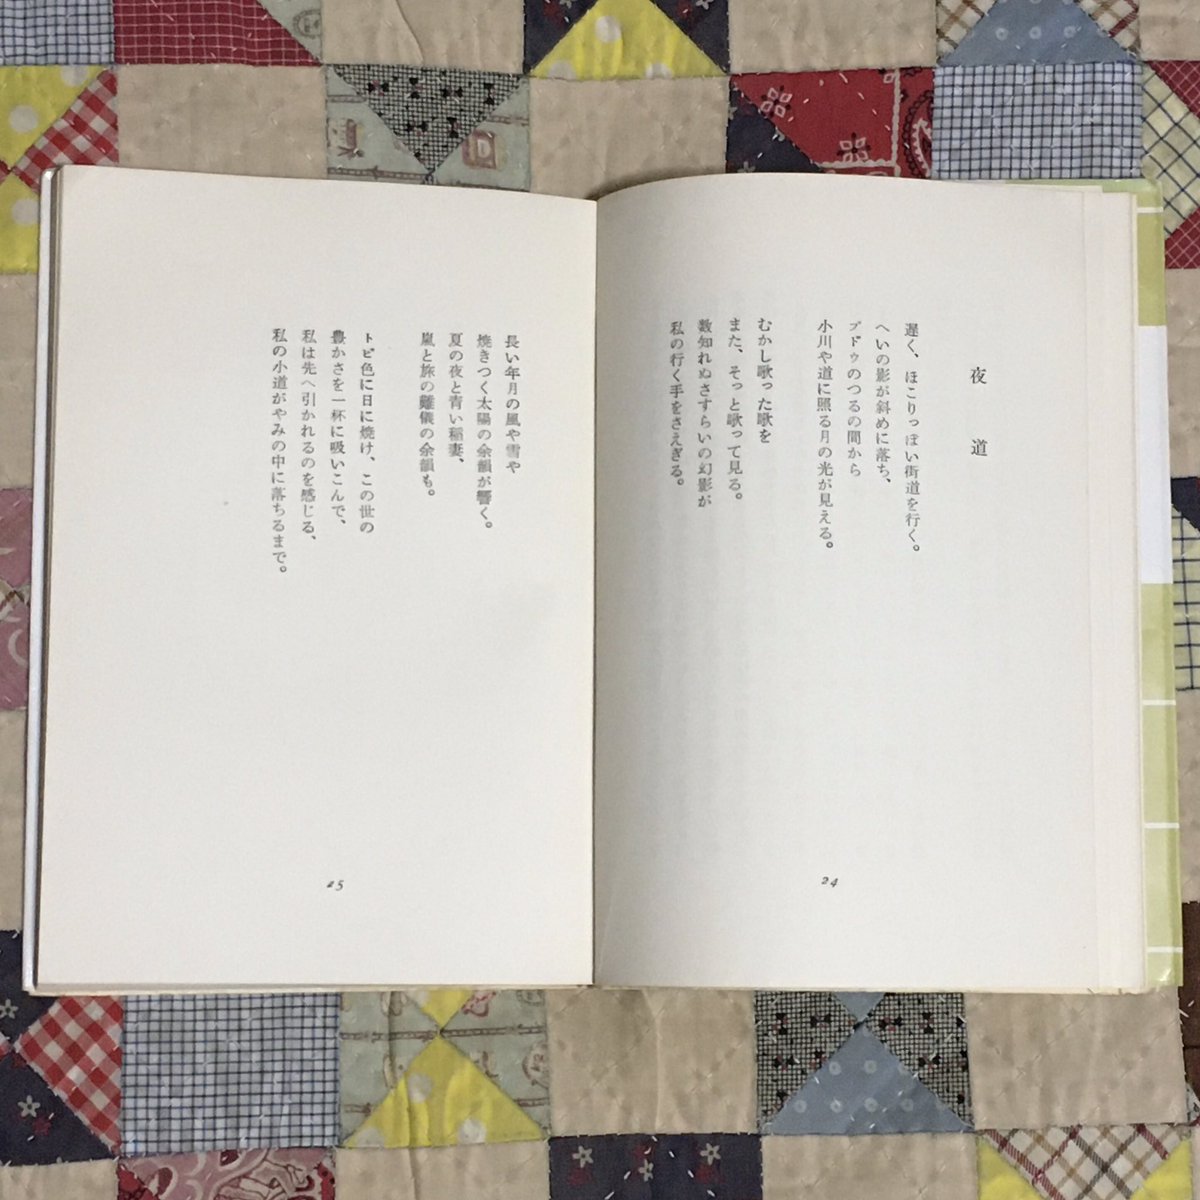 夜道
遅く、ほこりっぽい街道を行く。
へいの影が斜めに落ち、
ブドゥのつるの間から
小川や道に照る月の光が見える。
むかし歌った歌を
また、そっと歌って見る。
数知れぬさすらいの幻影が
私の行く手をさえぎる。
24
長い年月の風や雪や
焼きつく太陽の余韻が響く。
夏の夜と青い稲妻、
嵐と旅の難儀の余韻も。
トビ色に日に焼け、この世の
豊かさを一杯に吸いこんで、
私は先へ引かれるのを感じる、
私の小道がやみの中に落ちるまで。
25